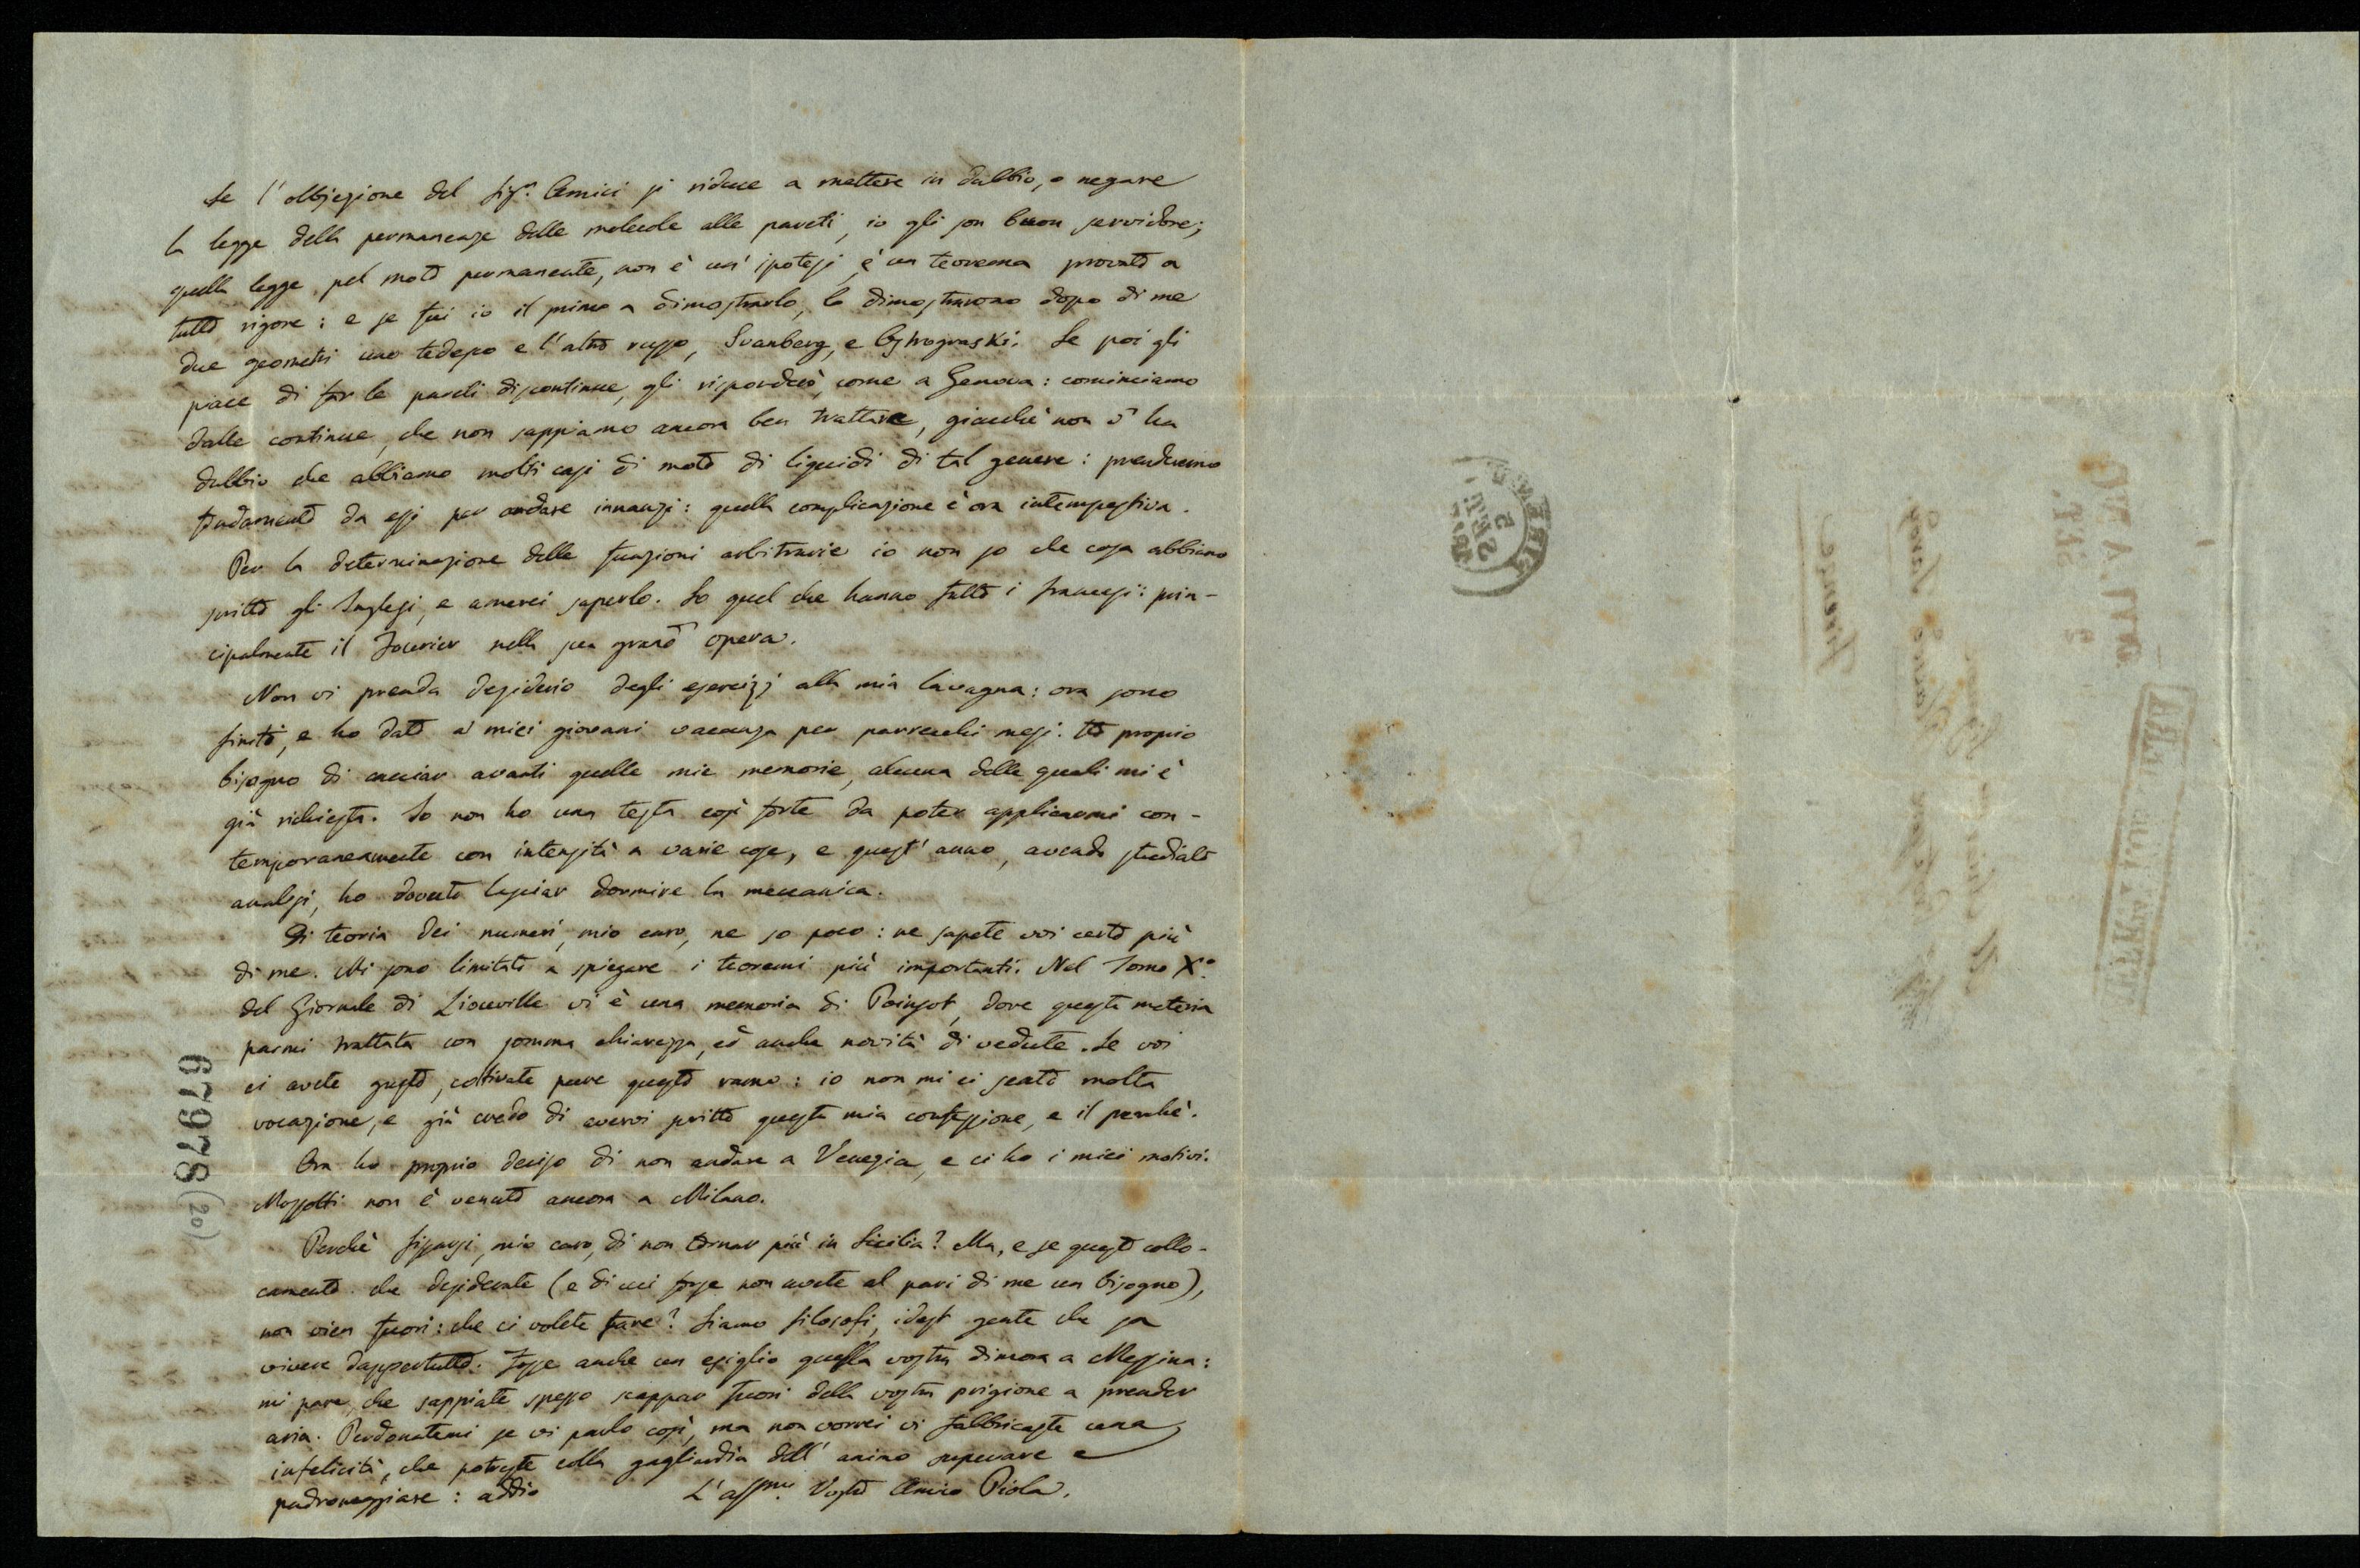 Se l'obbjezione del Sig.r Amici si riduce a mettere in dubbio, o negare
la legge della permanenza delle molecole alle pareti, io gli son buon servidore;
quella legge pel moto permanente, non è un' ipotesi, è un teorema provato a
tutto rigore: e se fui io il primo a dimostrarlo, lo dimostrarono dopo di me
due geometri uno tedesco e l'altro russo, Svanberg, e Ostrograski. Se poi gli
piace di far le pareti discontinue, gli risponderò, come a Genova: cominciamo
dalle continue, che non sappiamo ancora ben trattare, giacchè non v'ha
dubbio che abbiamo molti casi di moto di liquidi di tal genere: prenderemo
fondamento da essi per andare innanzi: quella complicazione è ora intempestiva.
Per la determinazione delle funzioni arbitrarie io non so che cosa abbiano
scritto gl' Inglesi, e amerei saperlo. So quel che hanno fatto i francesi: prin-
cipalmente il Fourier nella sua grand' opera.
Non vi prenda desiderio degli esercizj alla mia lavagna: ora sono
finito, e ho dato a' miei giovani vacanza per parrecchi mesi. Ho proprio
bisogno di cacciar avanti quelle mie memorie, alcuna delle quali mi è
già richiesta. Io non ho una testa così forte da poter applicarmi con-
temporaneamente con intensità a varie cose, e quest' anno, avendo studiato
analisi, ho dovuto lasciar dormire la meccanica.
Di teoria dei numeri, mio caro, ne so poco: ne sapete voi certo più
di me. Mi sono limitato a spiegare i teoremi più importanti. Nel Tomo X.o
del Giornale di Liouville vi è una memoria di Poinsot, dove questa materia
parmi trattata con somma chiarezza, ed anche novità di vedute. Se voi
ci avete gusto, coltivate pure questo ramo: io non mi ci sento molta
vocazione, e già credo di avervi scritto questa mia confessione, e il perchè.
Ora ho proprio deciso di non andare a Venezia, e ci ho i miei motivi.
Mossotti non è venuto ancora a Milano.
Perchè fissarsi, mio caro, di non tornar più in Sicilia? Ma, e se questo collo-
camento che desiderate (e di cui forse non avete al pari di me un bisogno),
non vien fuori: che ci volete fare? Siamo filosofi, idest gente che sa
vivere dappertutto. Fosse anche un esiglio quella vostra dimora a Messina:
mi pare, che sappiate spesso scappar fuori della vostra prigione a prender
aria. Perdonatemi se vi parlo così, ma non vorrei vi fabbricaste una
infelicità, che potreste colla gagliardia dell' animo superare e
padroneggiare: addio
L'aff.mo Vostro Amico Piola.
67978 (20)
FIRENZE
5
Firenze
MILANO